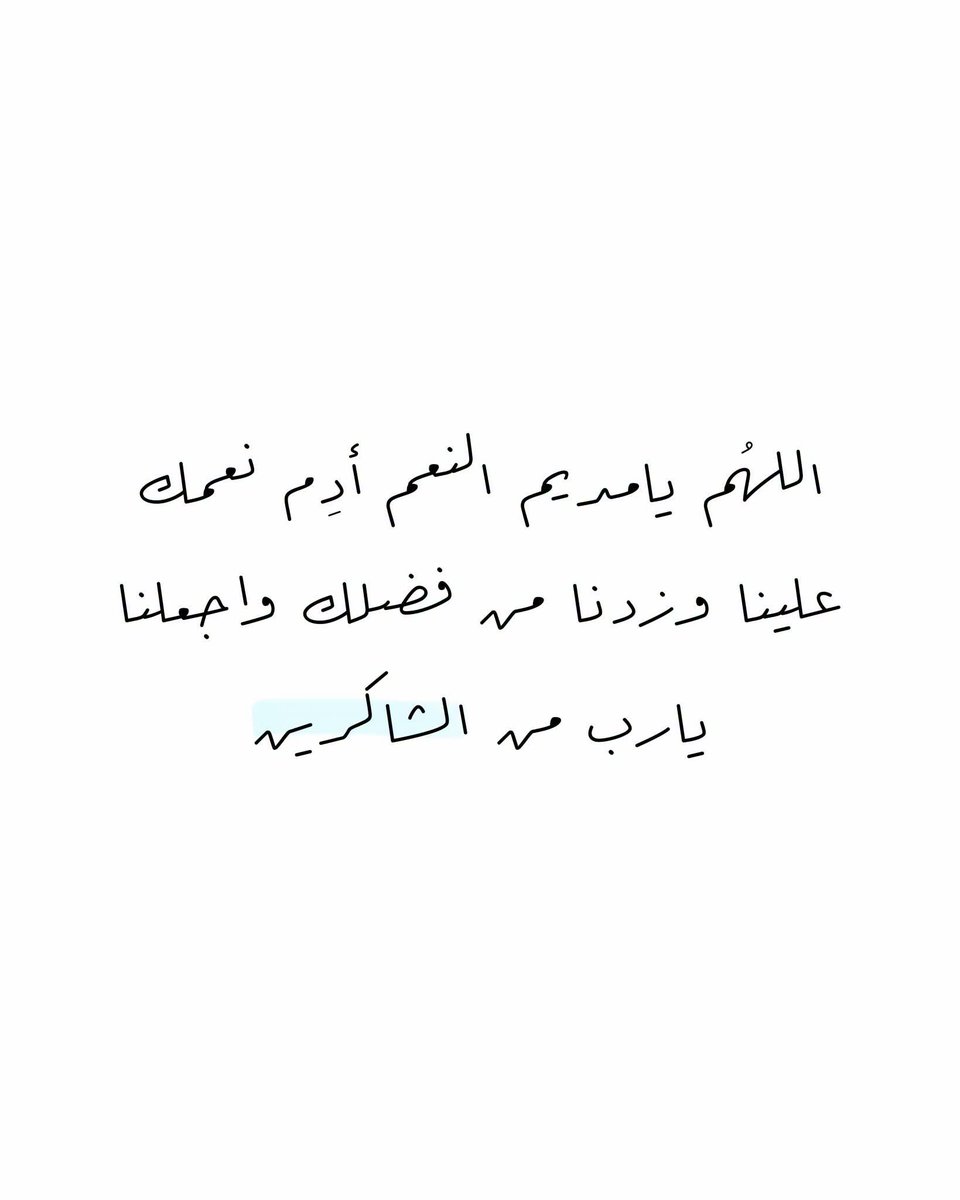 اللهُم يامديم النعم أدِم نعمك
علينا وزدنا من فضلك واجعلنا
يارب من الشاكرين